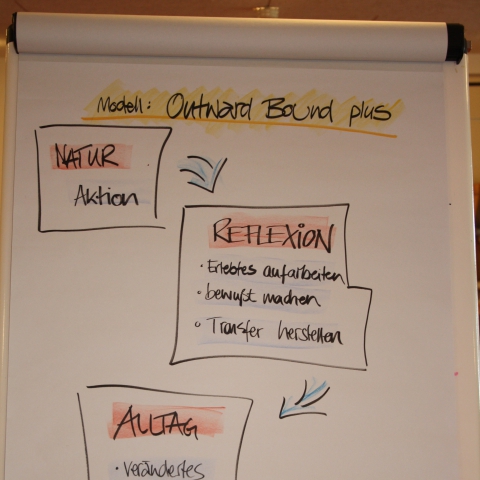 Modell: Outward Bound plus
NATUR
Aktion
REFLEXION
• Erlebtes aufarbeiten
• bewußt machen
• Transfer herstellen
ALLTAG
• verändertes